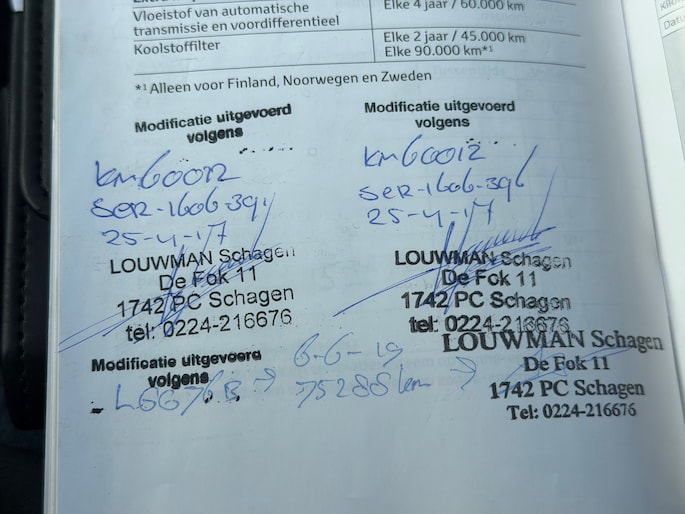 Vloeistof van automatische
transmissie en voordifferentieel
Elke 4 jaar / 60.000 km
Koolstoffilter
Elke 2 jaar / 45.000 km
Elke 90.000 km*1
*1 Alleen voor Finland, Noorwegen en Zweden
Modificatie uitgevoerd
volgens
km60012
SER-1606-391
25-4-17
LOUWMAN Schagen
De Fok 11
1742 PC Schagen
tel: 0224-216676
Modificatie uitgevoerd
volgens
km60012
SER-1606-396
25-4-17
LOUWMAN Schagen
De Fok 11
1742 PC Schagen
tel: 0224-216676
Modificatie uitgevoerd
volgens
6-6-19
75288 km
LOUWMAN Schagen
De Fok 11
1742 PC Schagen
Tel: 0224-216676